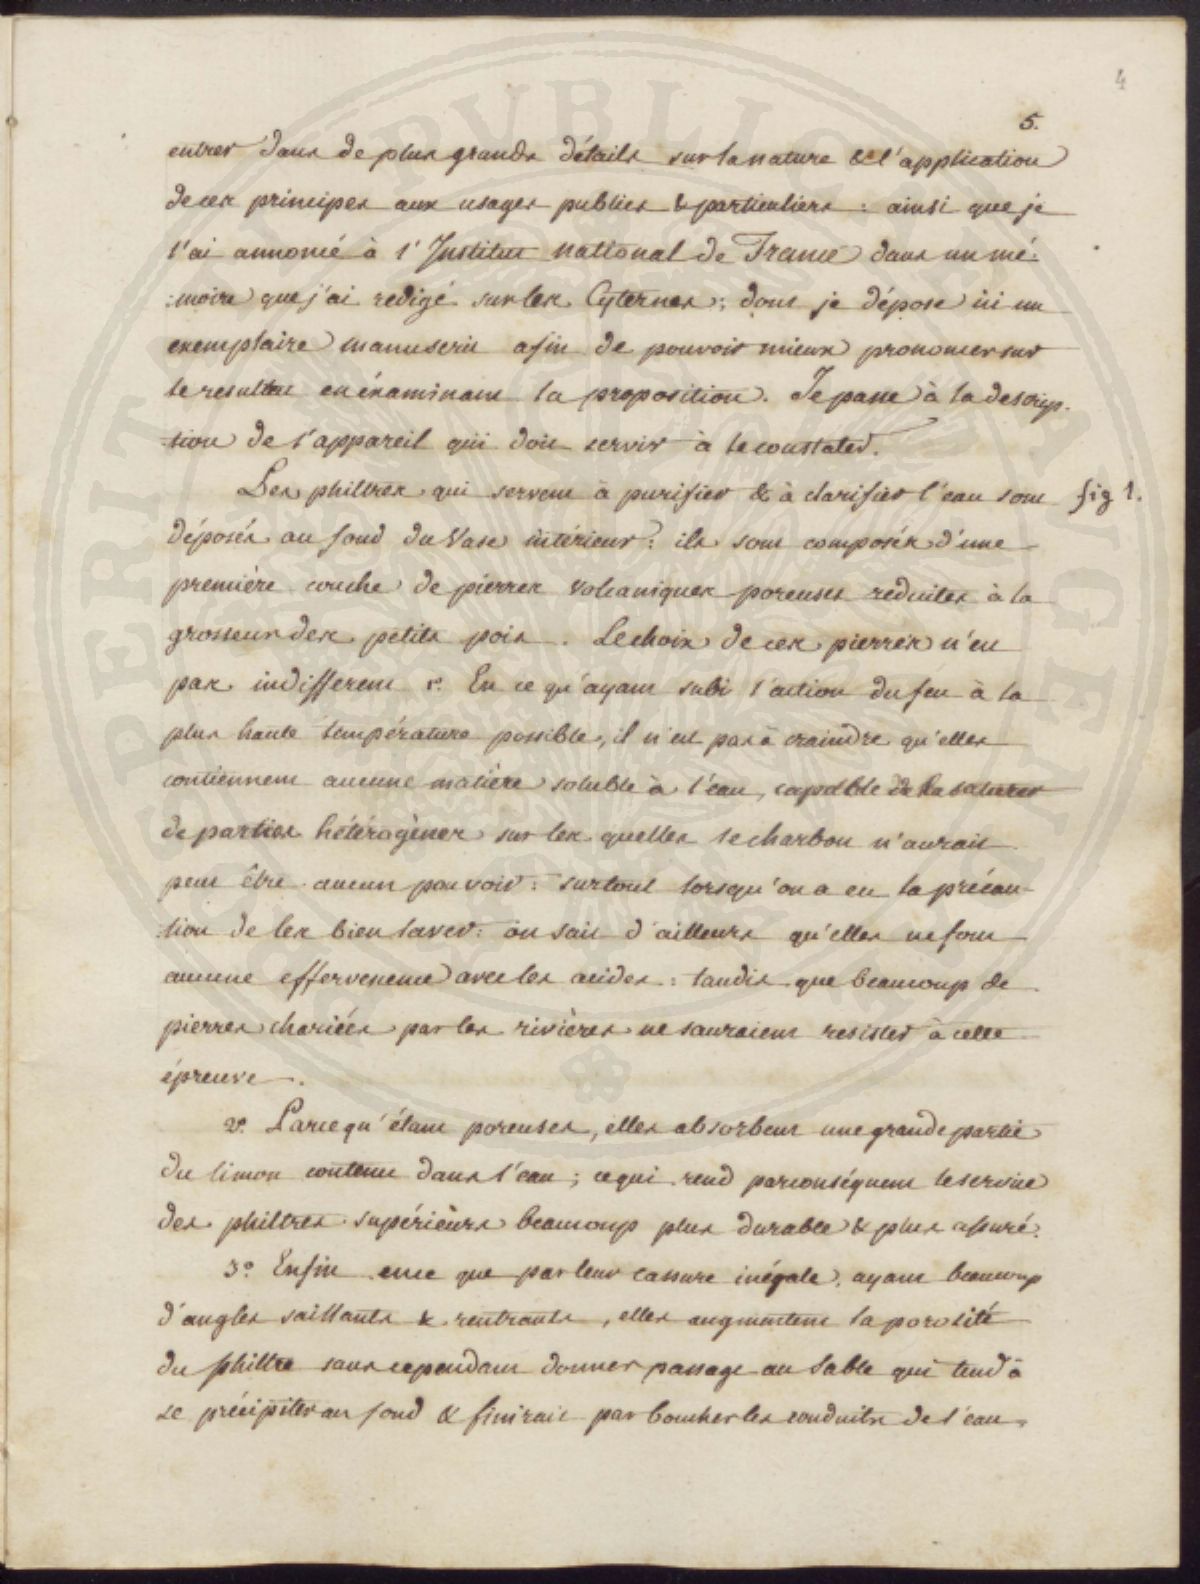 4
5.
entrer dans de plus grands détails sur la nature & l'application
de ces principes aux usages publics & particuliers : ainsi que je
l'ai annoncé à l'Institut national de France dans un mé-
:moire que j'ai redigé sur les Cyternes ; dont je dépose ici un
exemplaire manuscrit afin de pouvoir mieux prononcer sur
le resultat en éxaminant la proposition. Je passe à la descrip-
-tion de l'appareil qui doit servir à le constater.
Les philtres qui servent à purifier & à clarifier l'eau sont fig 1.
déposés au fond du Vase intérieur : ils sont composés d'une
première couche de pierres volcaniques poreuses réduites à la
grosseur des petits pois. Le choix de ces pierres n'est
pas indifferent 1°. En ce qu'ayant subi l'action du feu à la
plus haute température possible, il n'est pas à craindre qu'elles
contiennent aucune matière soluble à l'eau, capable de la saturer
de parties hétérogènes sur les quelles le charbon n'aurait
peut être aucun pouvoir : surtout lorsqu'on a eu la précau-
:tion de les bien laver : on sait d'ailleurs qu'elles ne font
aucune effervescence avec les acides : tandis que beaucoup de
pierres chariées par les rivières ne sauraient resister à cette
épreuve.
2°. Parcequ'étant poreuses, elles absorbent une grande partie
du limon contenu dans l'eau ; ce qui rend parconséquent le service
des philtres supérieurs beaucoup plus durable & plus assuré.
3°. Enfin en ce que par leur cassure inégale, ayant beaucoup
d'angles saillants & rentrants, elles augmentent la porosité
du philtre sans cependant donner passage au sable qui tend à
se précipiter au fond & finirait par boucher les conduits de l'eau.